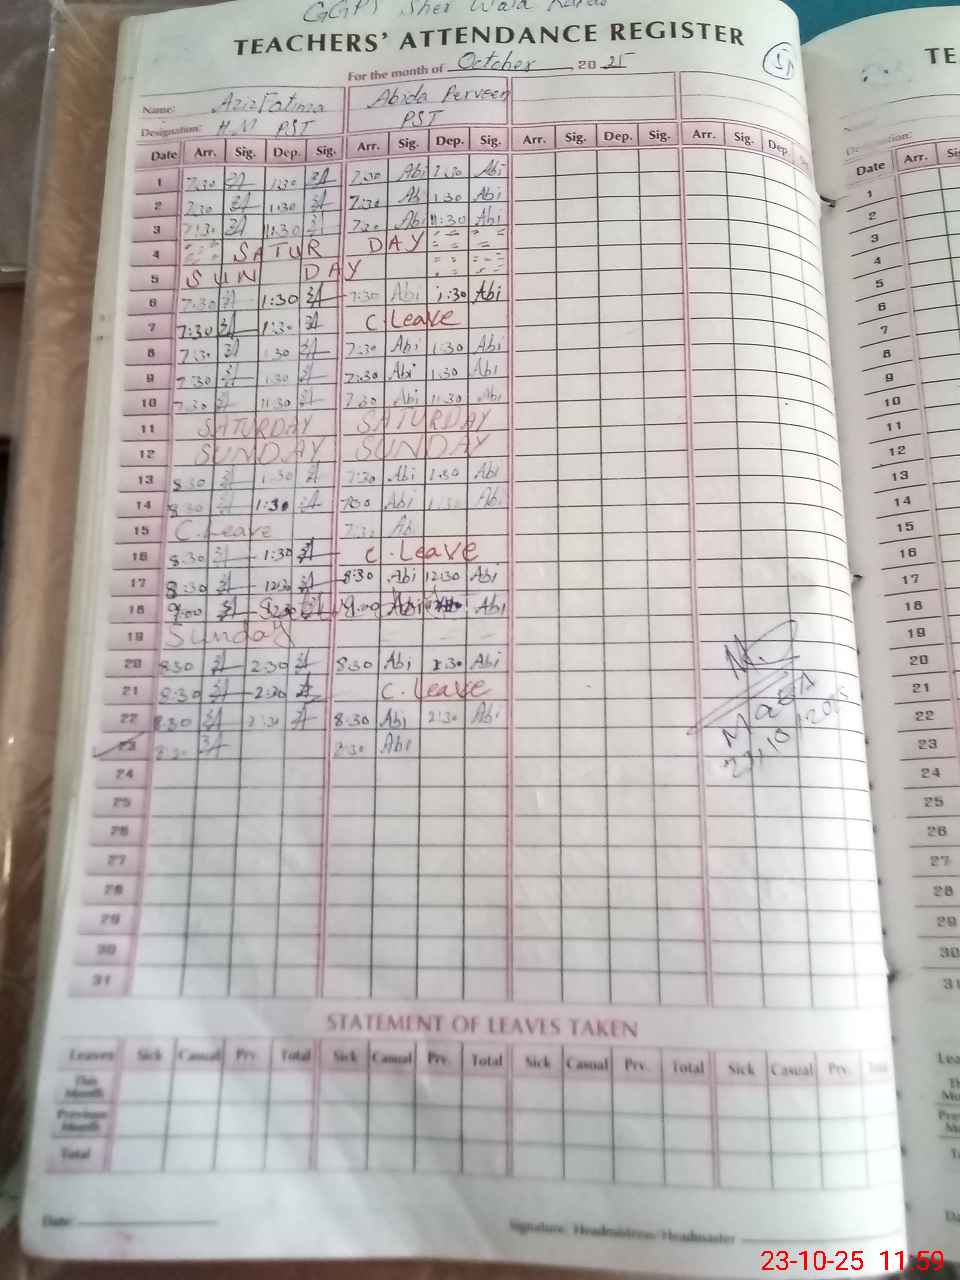 GGPS Sher Wala
TEACHERS' ATTENDANCE REGISTER
For the month of October, 2025
Name: Aziz Fatima Abida Perveen
Designation: H.M PST PST
Date Arr. Sig. Dep. Sig. Arr. Sig. Dep. Sig. Arr. Sig. Dep. Sig. Arr. Sig. Dep.
1 7:30 1:30 7:30 Abi 1:30 Abi
2 7:30 1:30 7:30 Abi 1:30 Abi
3 7:30 11:30 7:30 Abi 11:30 Abi
4 SATUR DAY
5 SUN DAY
6 7:30 1:30 7:30 Abi 1:30 Abi
7 7:30 1:30 C.Leave
8 7:30 1:30 7:30 Abi 1:30 Abi
9 7:30 1:30 7:30 Abi 1:30 Abi
10 7:30 11:30 7:30 Abi 11:30 Abi
11 SATURDAY SATURDAY
12 SUNDAY SUNDAY
13 8:30 1:30 7:30 Abi 1:30 Abi
14 8:30 1:30 7:30 Abi 1:30 Abi
15 C.Leave 7:30 Abi
16 8:30 1:30 C.Leave
17 8:30 12:30 8:30 Abi 12:30 Abi
18 9:00 9:00 Abi Abi
19 Sunday
20 8:30 2:30 8:30 Abi 2:30 Abi
21 8:30 2:30 C.Leave
22 8:30 2:30 8:30 Abi 2:30 Abi
23 8:30 8:30 Abi
24
25
26
27
28
29
30
31
STATEMENT OF LEAVES TAKEN
Leaves Sick Casual Prv. Total Sick Casual Prv. Total Sick Casual Prv. Total Sick Casual Prv. Total
This Month
Previous Month
Total
Date:
Signature: Headmistress/Headmaster
TE
Date Arr.
1
2
3
4
5
6
7
8
9
10
11
12
13
14
15
16
17
18
19
20
21
22
23
24
25
26
27
28
29
30
31
23-10-25 11:59